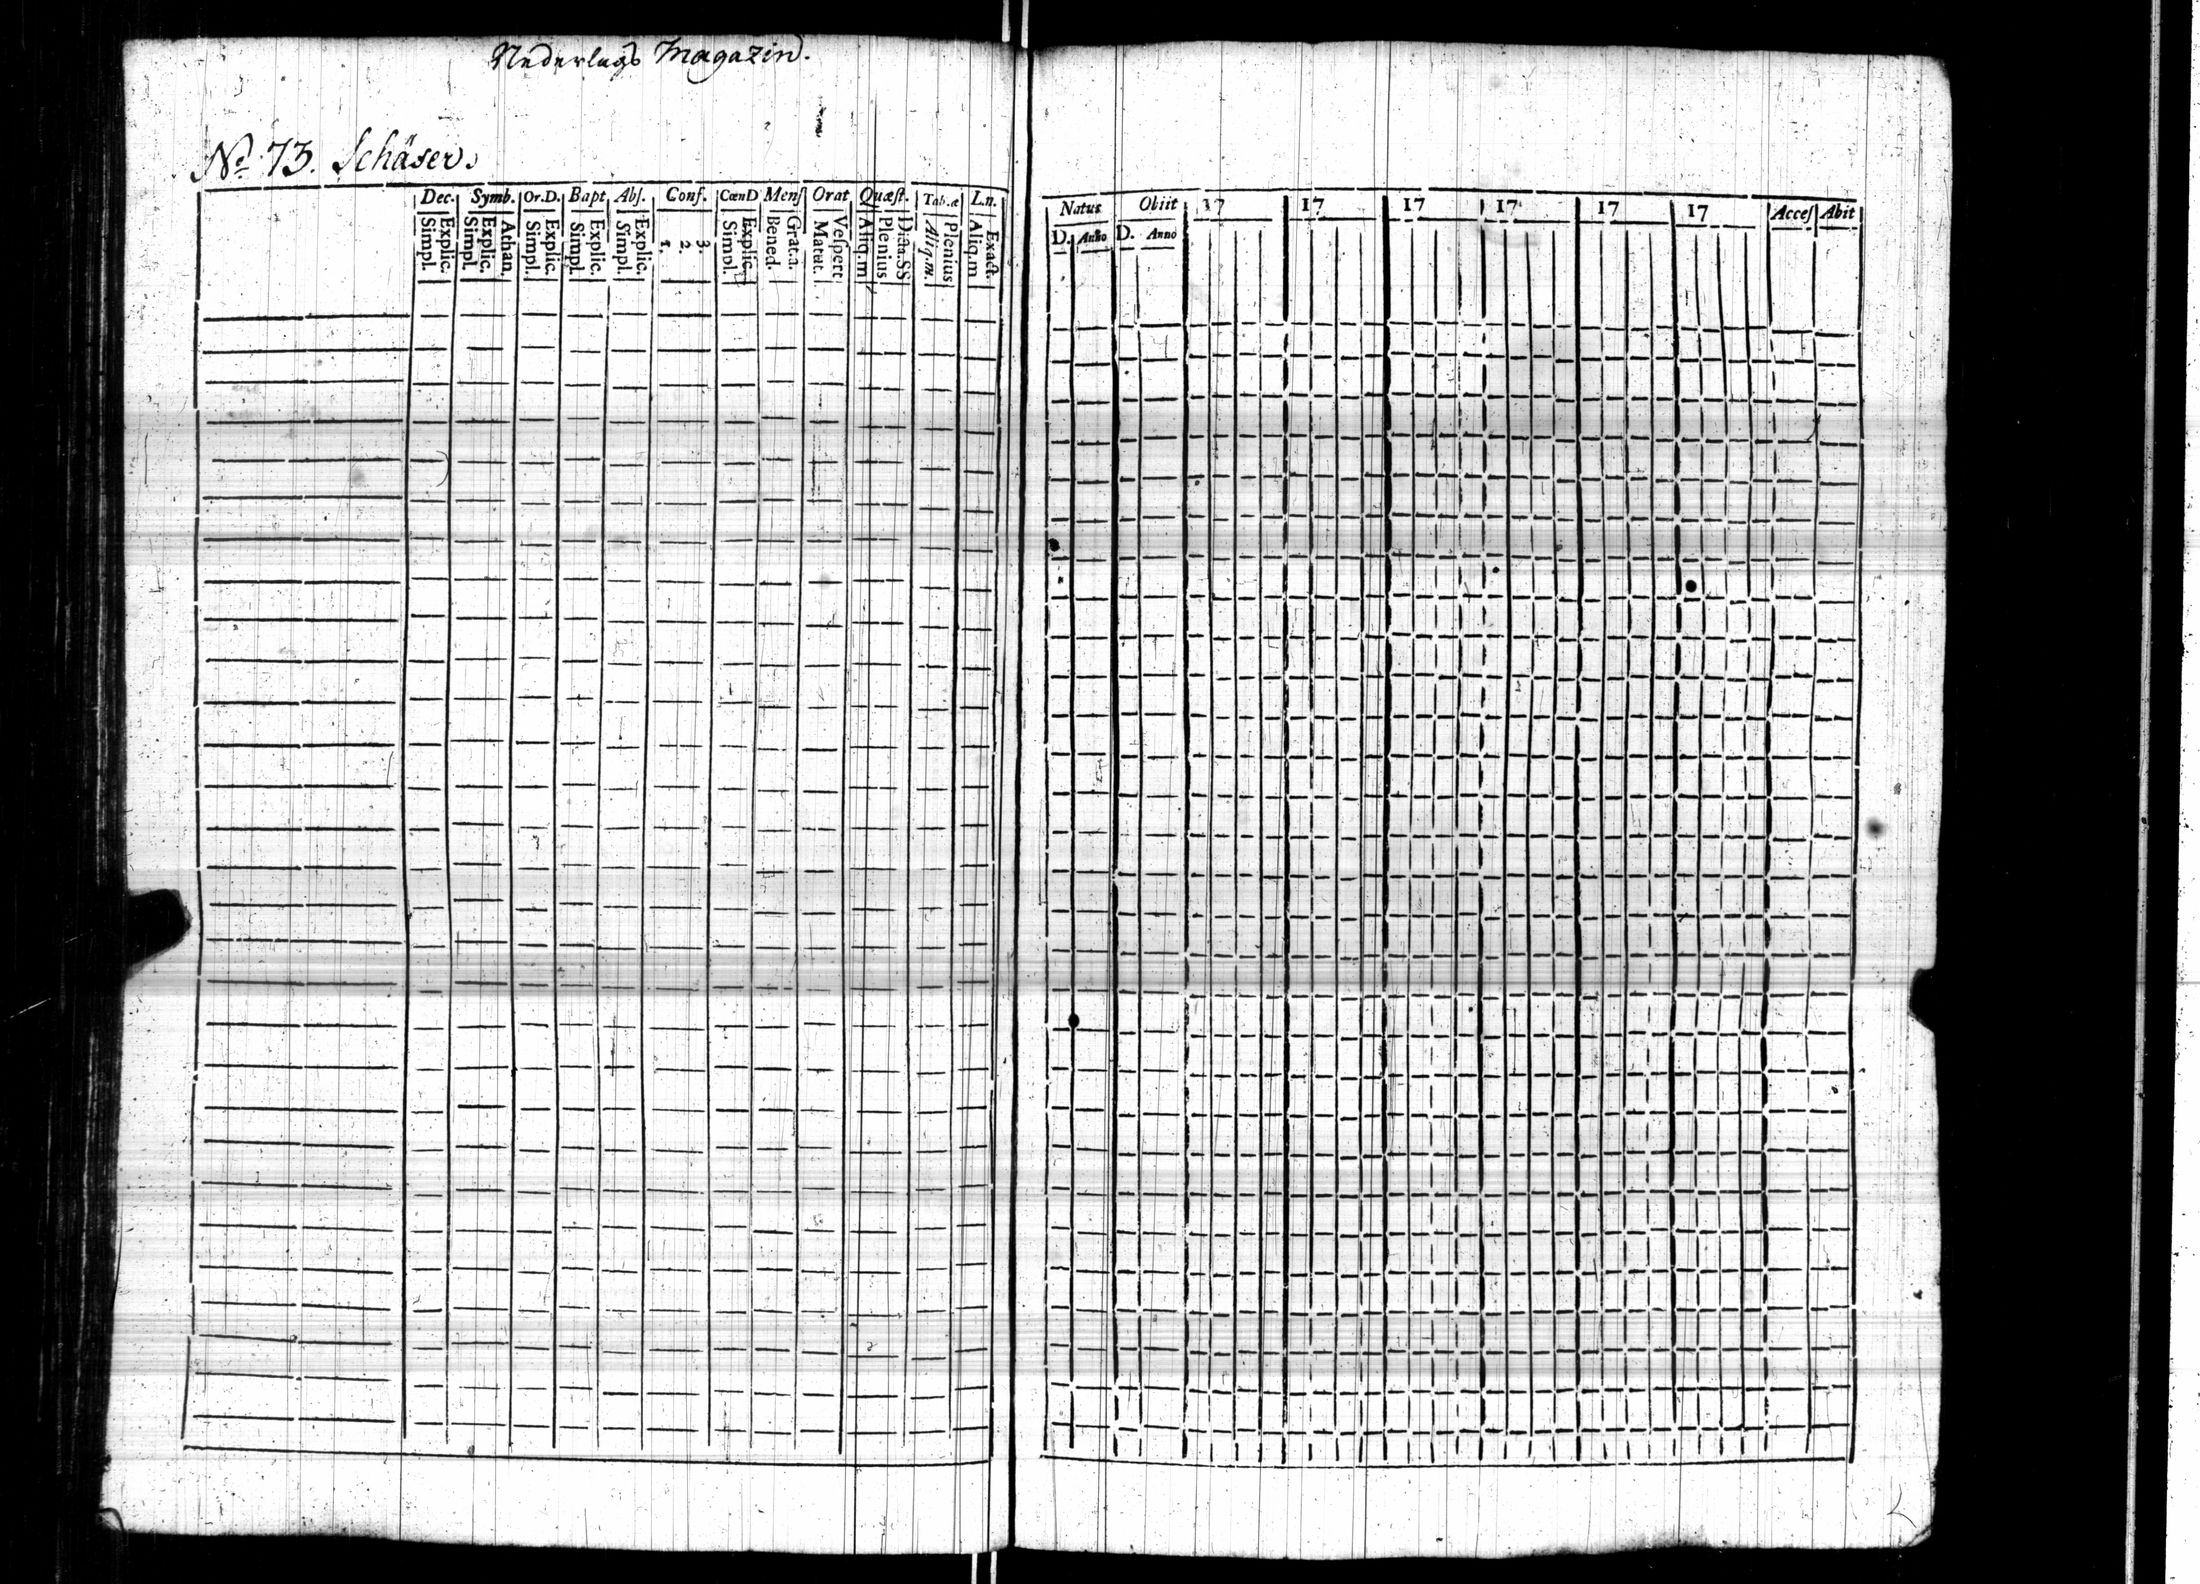 Nederlags Magazin.
No 73. Schäfer.
Dec. Symb. Or.D. Bapt Abſ. Conf. CœnD Menſ Orat Quæſt. Tab.æ L.n.
Simpl. Explic. Simpl. Explic. Athan. Simpl. Explic. Simpl. Explic. Simpl. Explic. 1. 2. 3. Simpl. Explic. Bened. Grat.a. Matut. Veſpert Aliq.m Plenius Dicta.SS Aliq.m. Plenius Aliq.m Exact.
Natus Obiit 17 17 17 17 17 17 Acceſ Abit
D. Anno D. Anno